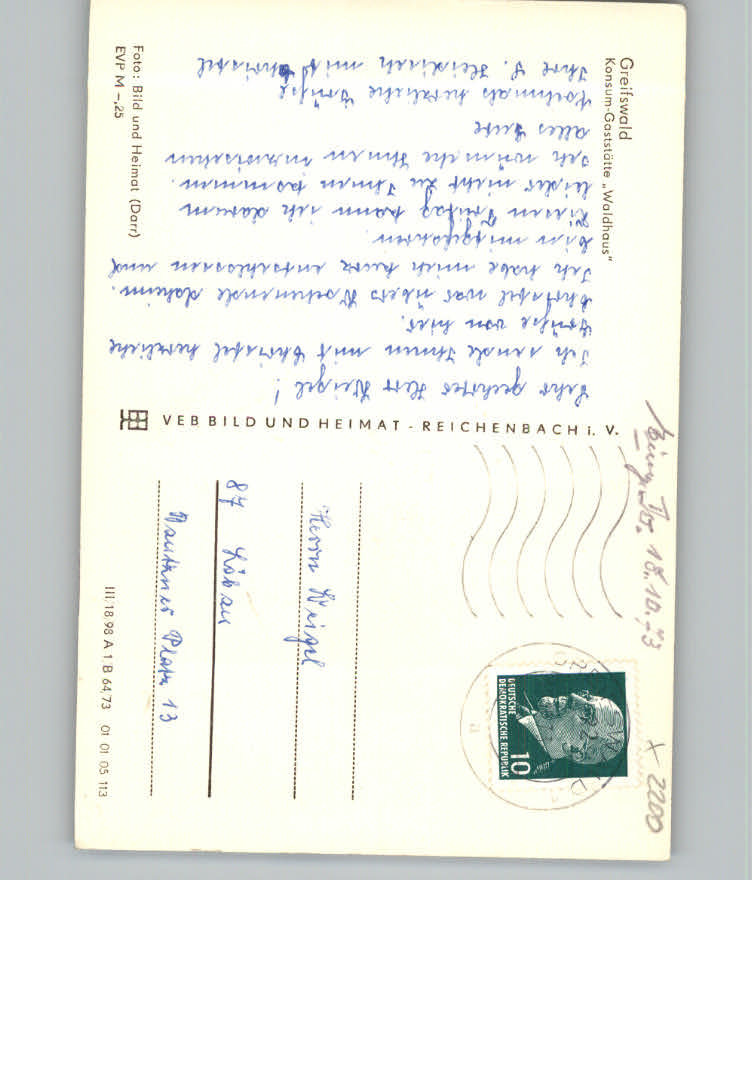 Greifswald
Konsum-Gaststätte „Waldhaus"
Sehr geehrter Herr Weigel!
Ich sende Ihnen mit Christel herzliche
Grüße von hier.
Christel war übers Wochenende daheim.
Ich habe mich kurz entschlossen und
bin mitgefahren.
Diesen Freitag kann ich darum
leider nicht zu Ihnen kommen.
Ich wünsche Ihnen inzwischen
alles Gute
Nochmals herzliche Grüße
Ihre S. mit Christel
Foto: Bild und Heimat (Darr)
EVP M -,25
VEB BILD UND HEIMAT - REICHENBACH i. V.
18.10.73
X 2200
DEUTSCHE
DEMOKRATISCHE REPUBLIK
10
Herrn Weigel
87 Löbau
Bautzner Platz 13
III/18/98 A 1/B 64/73 01 01 05 113